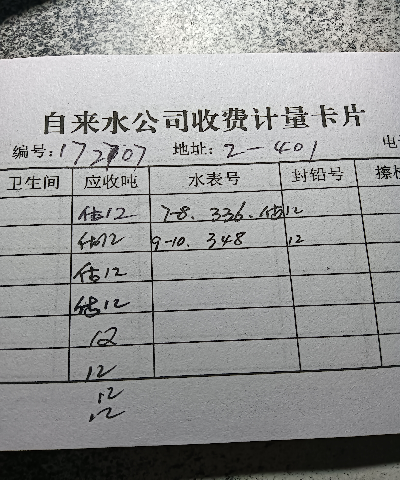 自来水公司收费计量卡片
编号:172707 地址:2-401 电
卫生间 应收吨 水表号 封铅号 擦
估12 7-8. 336. 估12
估12 9-10. 348 12
估12
估12
12
12
12
12